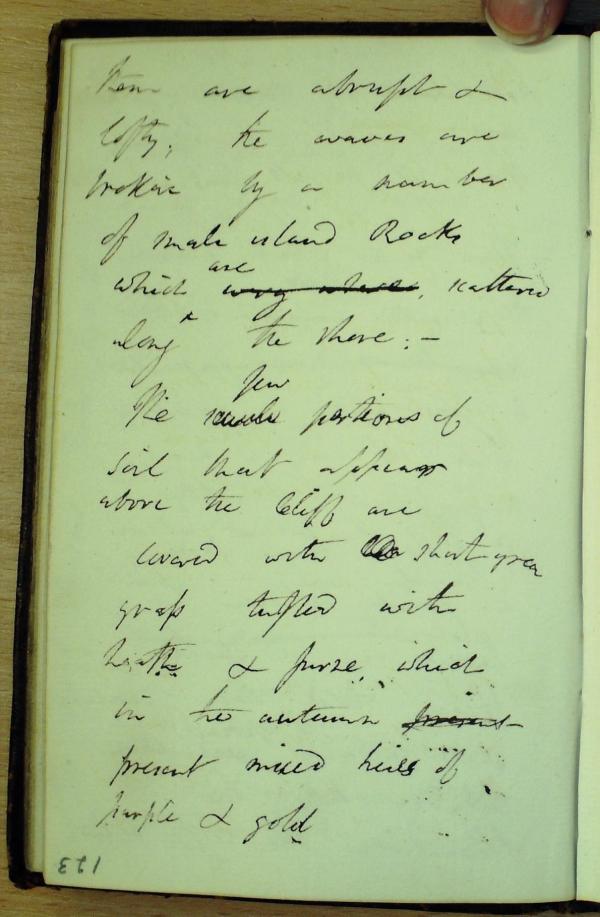 are abrupt &
lofty; the waves are
broken by a number
of small island Rocks
are
which scattered
along the shore; —
few
The portions of
soil that appear
above the Cliff are
covered with short green
grass tufted with
heath & furze, which
in the autumn present
present mixed hues of
purple & gold
123